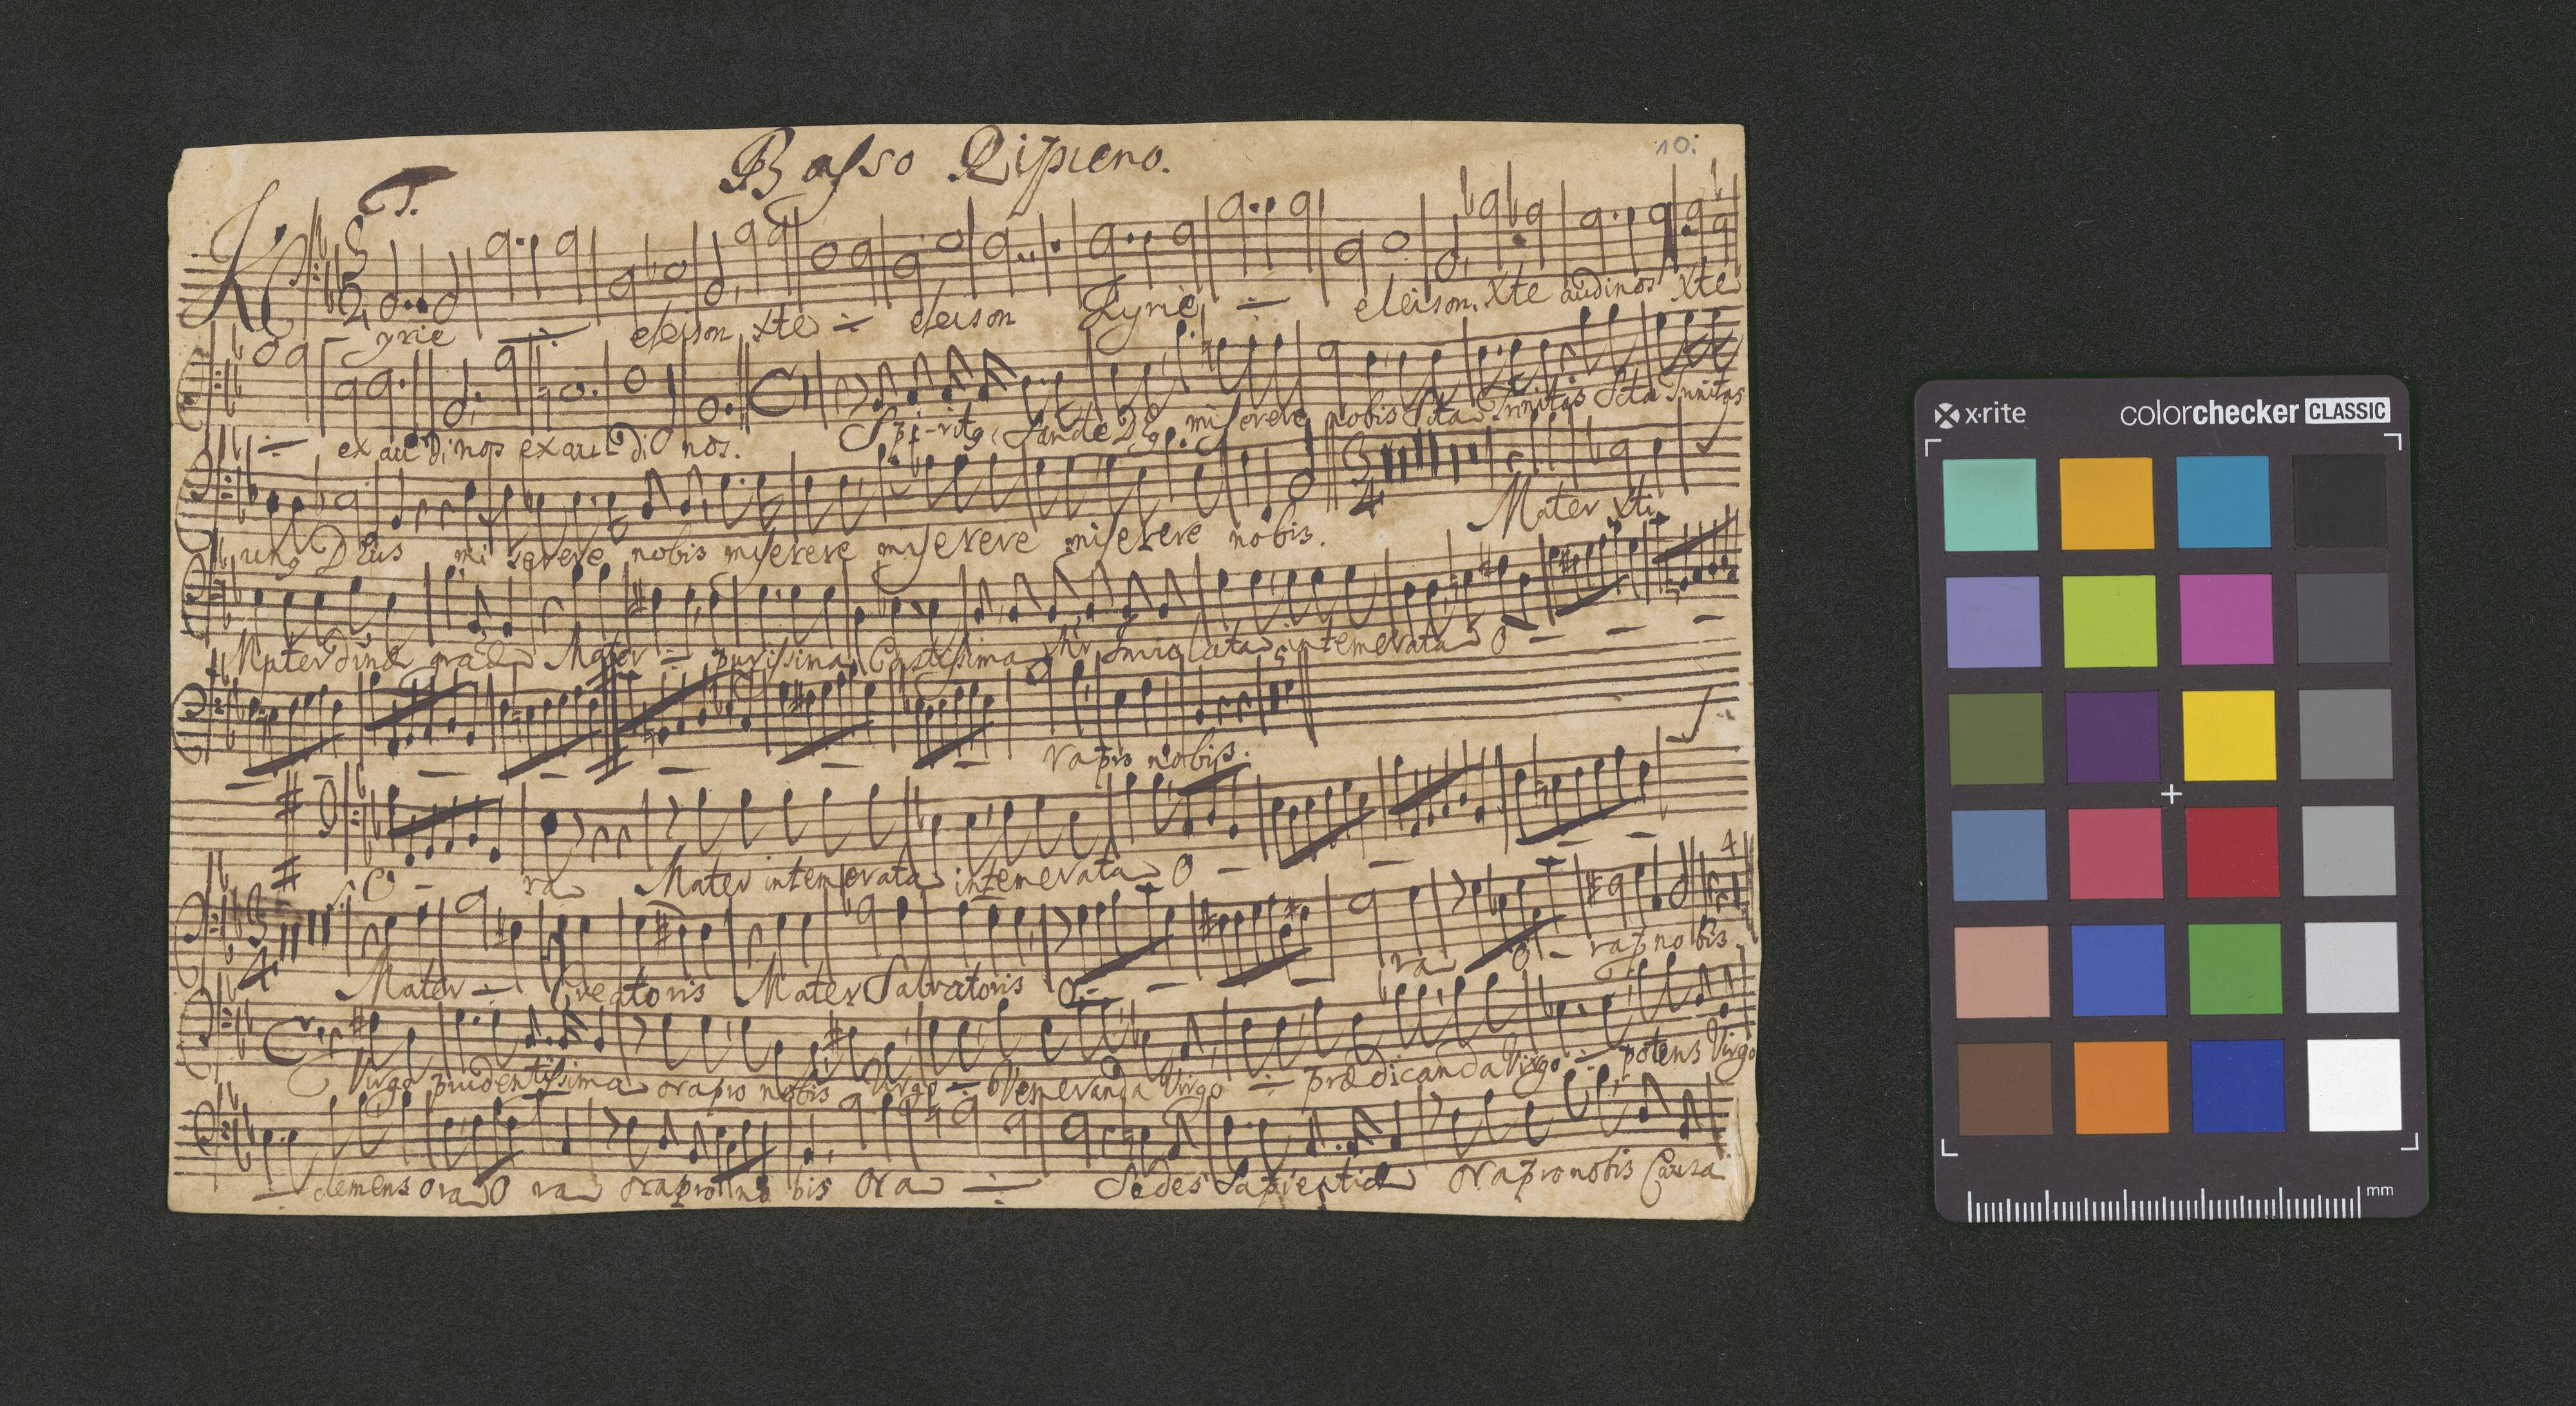 Basso Ripieno.
10:
T.
Kyrie ÷ eleison xte ÷ eleison Kyrie ÷ eleison. Xte audinos xte
÷ exaudinos exaudi nos. Spiritq Sancte Dg. miserere nobis Sta Trinitas Sta Trinitas
unq Deus miserere nobis miserere miserere miserere nobis. Mater xti
Mater divinæ Mater ÷ purissima Castissima Inviolata intemerata O – – –
– – – – – – ra pro nobis.
O – ra Mater intemerata intemerata O – – –
Mater ÷ Creatoris Mater Salvatoris O – – ra O – ra p nobis.
Virgo prudentissima ora pro nobis Virgo ÷ Veneranda Virgo ÷ prædicanda Virgo ÷ potens Virgo
÷ clemens ora O ra ora pro no bis ora ÷ Sedes Sapientiæ ora pro nobis Causa
x-rite
colorchecker CLASSIC
mm